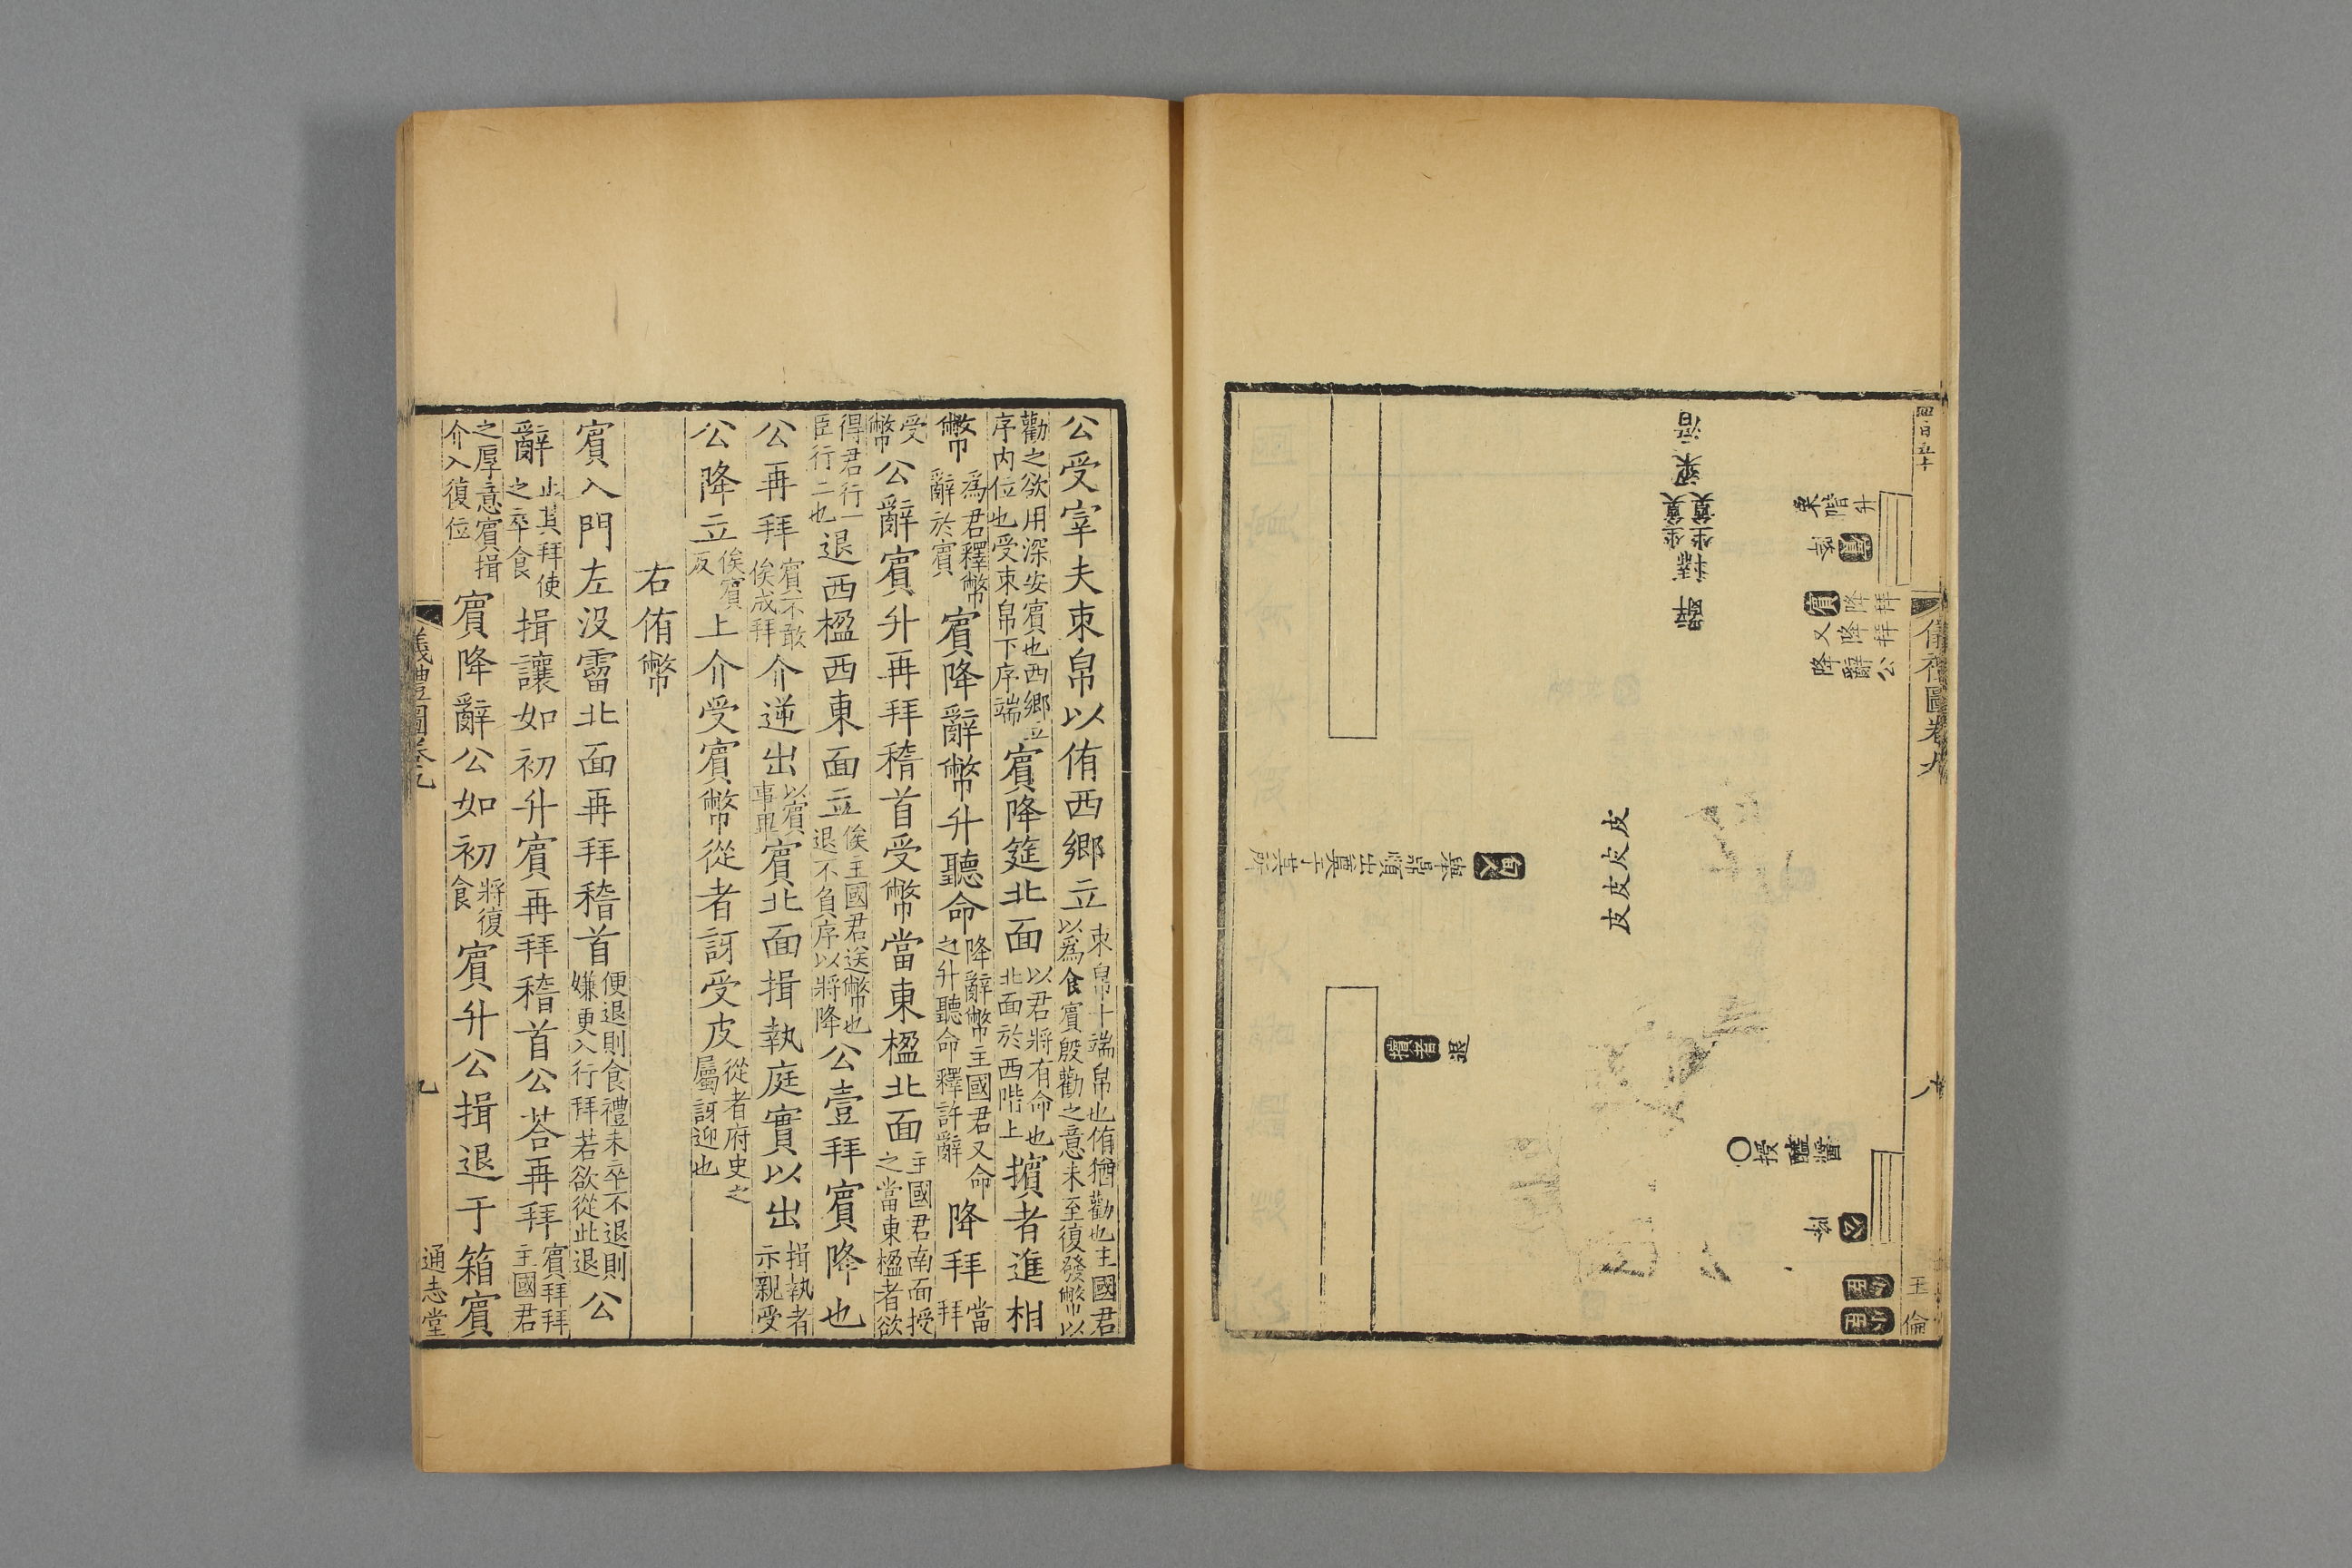 四百五十
儀禮圖卷九
八
王倫
栗階升
賓
降
賓
降拜
又降拜
降辭公
公
降
小臣
小臣
授
醯醬
皮皮皮皮
甸人
舉鼎順出奠于其所
擯者
退
公受宰夫束帛以侑西鄉立束帛十端帛也侑猶勸也主國君
以為食賓殷勸之意未至復發幣以
勸之欲用深安賓也西鄉立
序内位也受束帛下序端賓降筵北面以君將有命也
北面於西階上擯者進相
幣為君釋幣
辭於賓賓降辭幣升聽命降辭幣主國君又命
之升聽命釋許辭降拜當
拜
受
幣公辭賓升再拜稽首受幣當東楹北面主國君南面授
之當東楹者欲
得君行一
臣行二也退西楹西東面立俟主國君送幣也
退不負序以將降公壹拜賓降也
公再拜賓不敢
俟成拜介逆出以賓
事畢賓北面揖執庭實以出揖執者
示親受
公降立俟賓
反上介受賓幣從者訝受皮從者府史之
屬訝迎也
右侑幣
賓入門左沒霤北面再拜稽首便退則食禮未卒不退則
嫌更入行拜若欲從此退公
辭止其拜使
之卒食揖讓如初升賓再拜稽首公荅再拜賓拜拜
主國君
之厚意賓揖
介入復位賓降辭公如初將復
食賓升公揖退于箱賓
儀禮圖卷九
九
通志堂